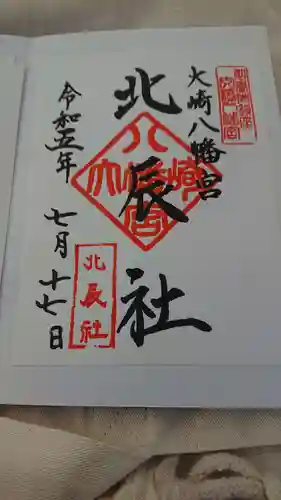 大崎八幡宮
北辰社
令和五年
七月十七日
北辰社